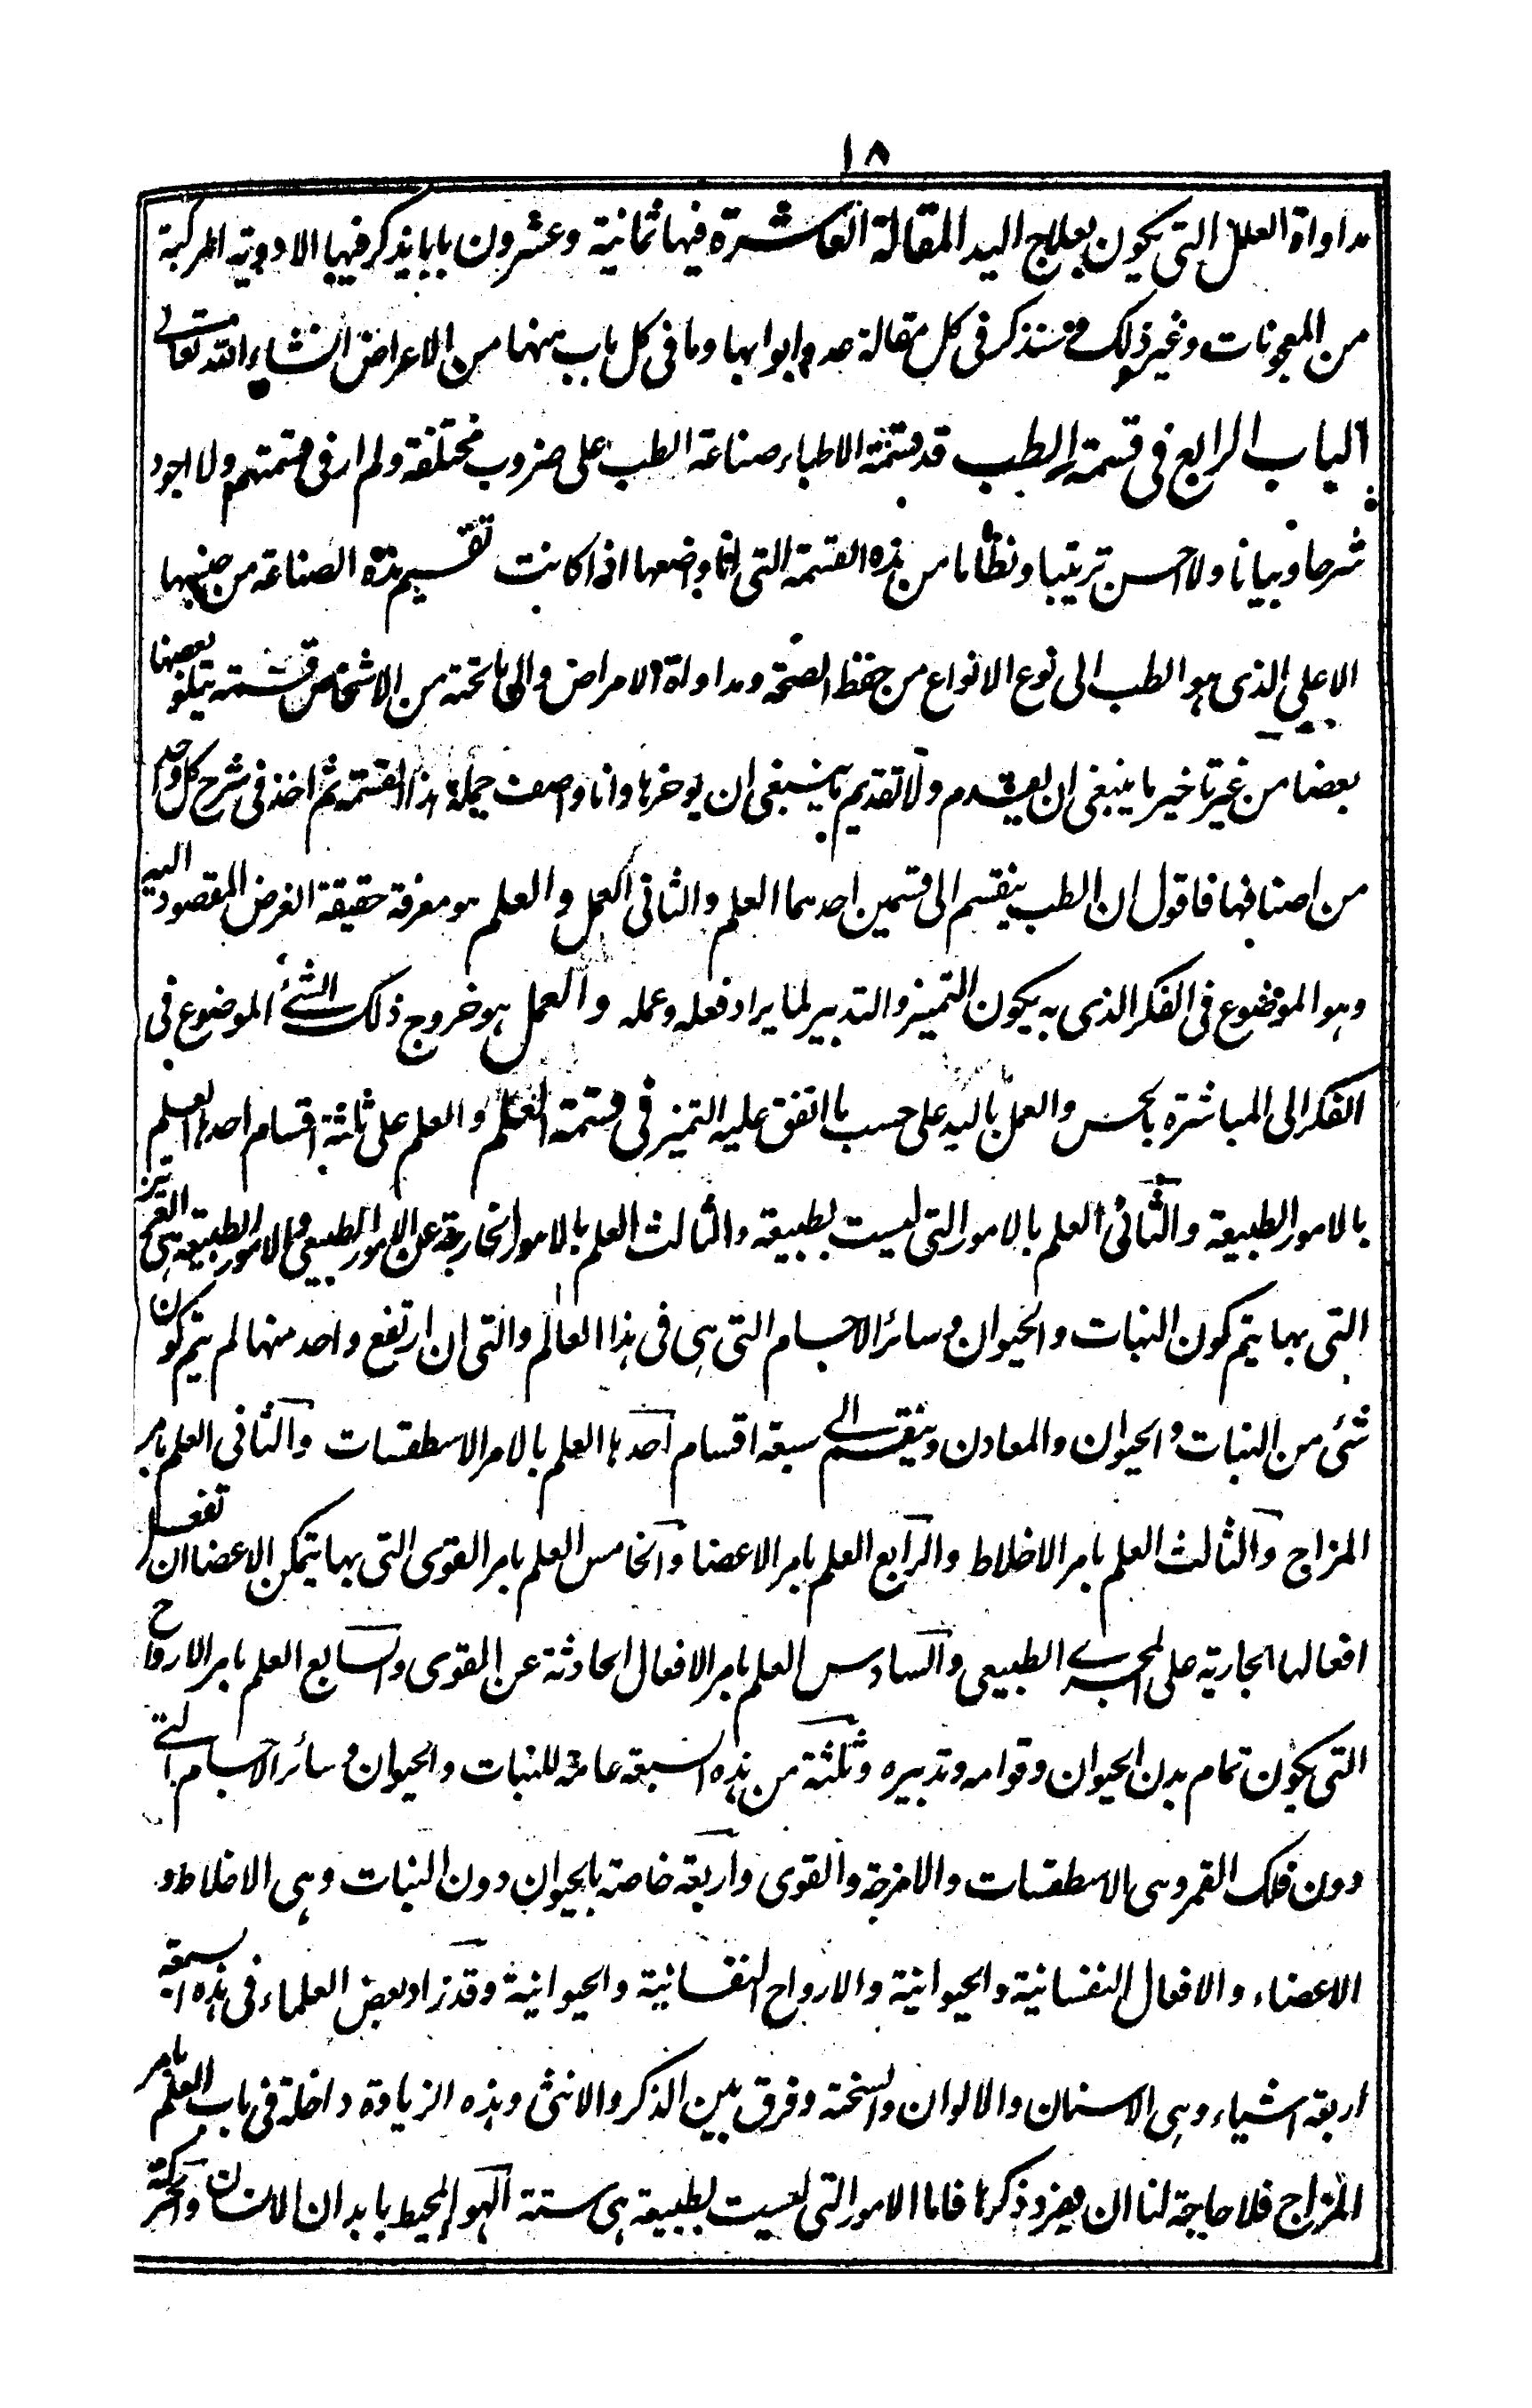 ١٨
مداواة العلل التى يكون بعلاج اليد المقالة العاشرة فيها ثمانية وعشرون بابا يذكر فيها الادوية المركبة
من المعجونات وغير ذلك وستذكر فى كل مقالة عدد ابوابها وما فى كل باب منها من الاعراض انشاء الله تعالى
الباب الرابع فى قسمة الطب قد قسمت الاطباء صناعة الطب على ضروب مختلفة ولم ار فى قسمتهم ولا اجود
شرحا وبيانا ولا احسن ترتيبا ونظاما من هذه القسمة التى انا واضعها اذا كانت تقسيم هذه الصناعة من جنسها
الاعلى الذى هو الطب الى نوع الانواع من حفظ الصحة ومداواة الامراض والى ما تحته من الاشخاص قسمة يتلو بعضها
بعضا من غير تاخير ما ينبغى ان يقدم ولا تقديم ما ينبغى ان يوخرها وانا واصف جملة هذا القسمة ثم اخذ فى شرح كل واحد
من اصنافها فاقول ان الطب ينقسم الى قسمين احدهما العلم والثانى العمل والعلم هو معرفة حقيقة الغرض المقصود اليه
وهو الموضوع فى الفكر الذى به يكون التميز والتدبير لما يراد فعله وعمله والعمل هو خروج ذلك الشئ الموضوع فى
الفكر الى المباشرة بالحس والعمل باليد على حسب ما اتفق عليه التميز فى قسمة العلم والعلم على ثلثة اقسام احدها العلم
بالامور الطبيعة والثانى العلم بالامور التى ليست بطبيعة والثالث العلم بالامور الخارجة عن الامور الطبيعى والامور الطبيعة هى
التى بها يتم كون النبات والحيوان وسائر الاجسام التى هى فى هذا العالم والتى ان ارتفع واحد منها لم يتم كون
شئ من النبات والحيوان والمعادن وينقسم الى سبعة اقسام احدها العلم بالامر الاسطقسات والثانى العلم بامر
المزاج والثالث العلم بامر الاخلاط والرابع العلم بامر الاعضا والخامس العلم بامر القوى التى بها يتمكن الاعضا ان تفعل
افعالها الجارية على المجرى الطبيعى والسادس العلم بامر الافعال الحادثة عن القوى والسابع العلم بامر الارواح
التى يكون تمام بدن الحيوان وقوامه وتدبيره وثلثة من هذه السبعة عامة للنبات والحيوان وسائر الاجسام التى
دون فلك القمر وهى الاسطقسات والامزجة والقوى واربعة خاصة بالحيوان دون النبات وهى الاخلاط و
الاعضاء والافعال النفسانية والحيوانية والارواح النفسانية والحيوانية وقد زاد بعض العلماء فى هذه السبعة
اربعة اشياء وهى الاسنان والالوان والسخنة وفرق بين الذكر والانثى وهذه الزيادة داخلة فى باب العلم بامر
المزاج فلا حاجة لنا ان يفرد ذكرها فاما الامور التى ليست بطبيعة هى ستة الهوا المحيط بابدان الانسان والحركة